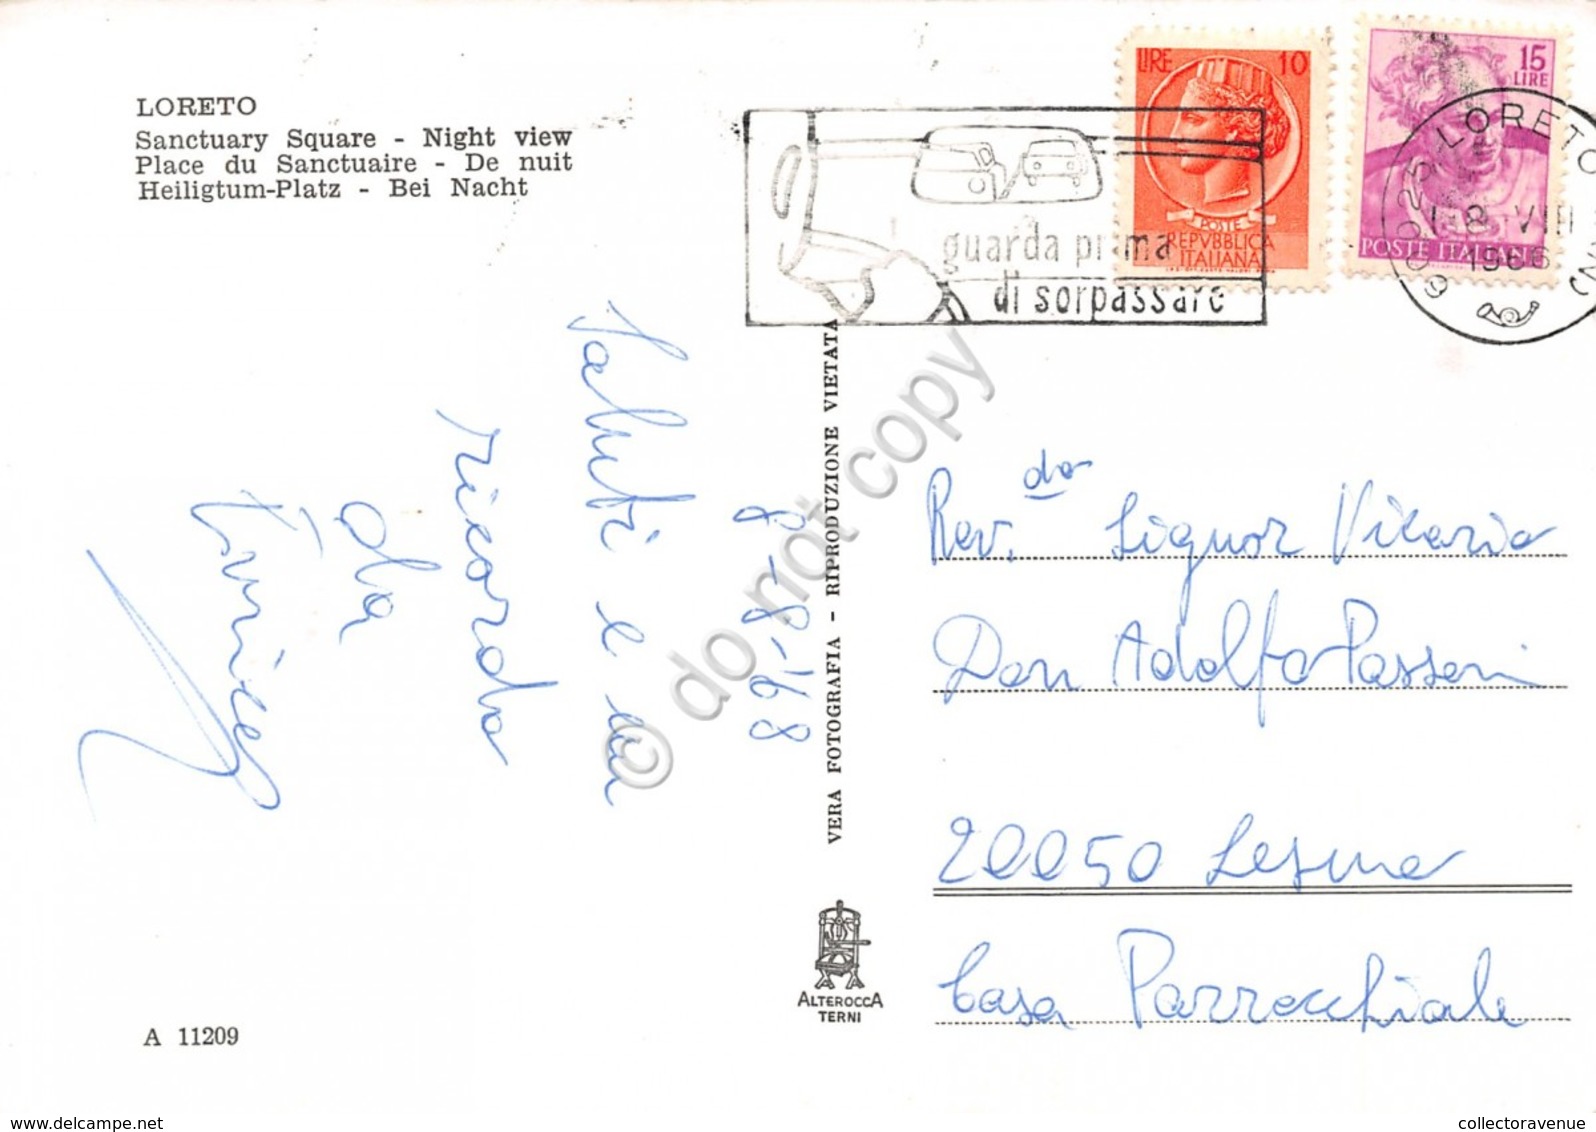 LORETO
Sanctuary Square - Night view
Place du Sanctuaire - De nuit
Heiligtum-Platz - Bei Nacht
guarda prima
di sorpassare
LIRE 10
POSTE
REPVBBLICA
ITALIANA
15
LIRE
POSTE ITALIANE
60025 LORETO (AN)
8 VIII
1968
8-8-'68
Saluti e un
ricordo
da
VERA FOTOGRAFIA - RIPRODUZIONE VIETATA
Rev.do Signor Vicario
Don Adolfo Passoni
20050 Lesmo
Casa Parrocchiale
ALTEROCCA
TERNI
A 11209
© do not copy
www.delcampe.net
collectoravenue